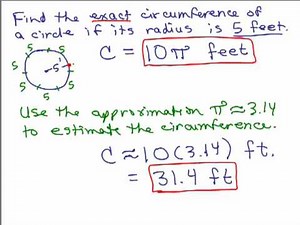 Find the exact circumference of
a circle if its radius is 5 feet.
C = 10π feet
5 5 5 5 5 5 5'
Use the approximation π ≈ 3.14
to estimate the circumference.
C ≈ 10(3.14) ft.
= 31.4 ft